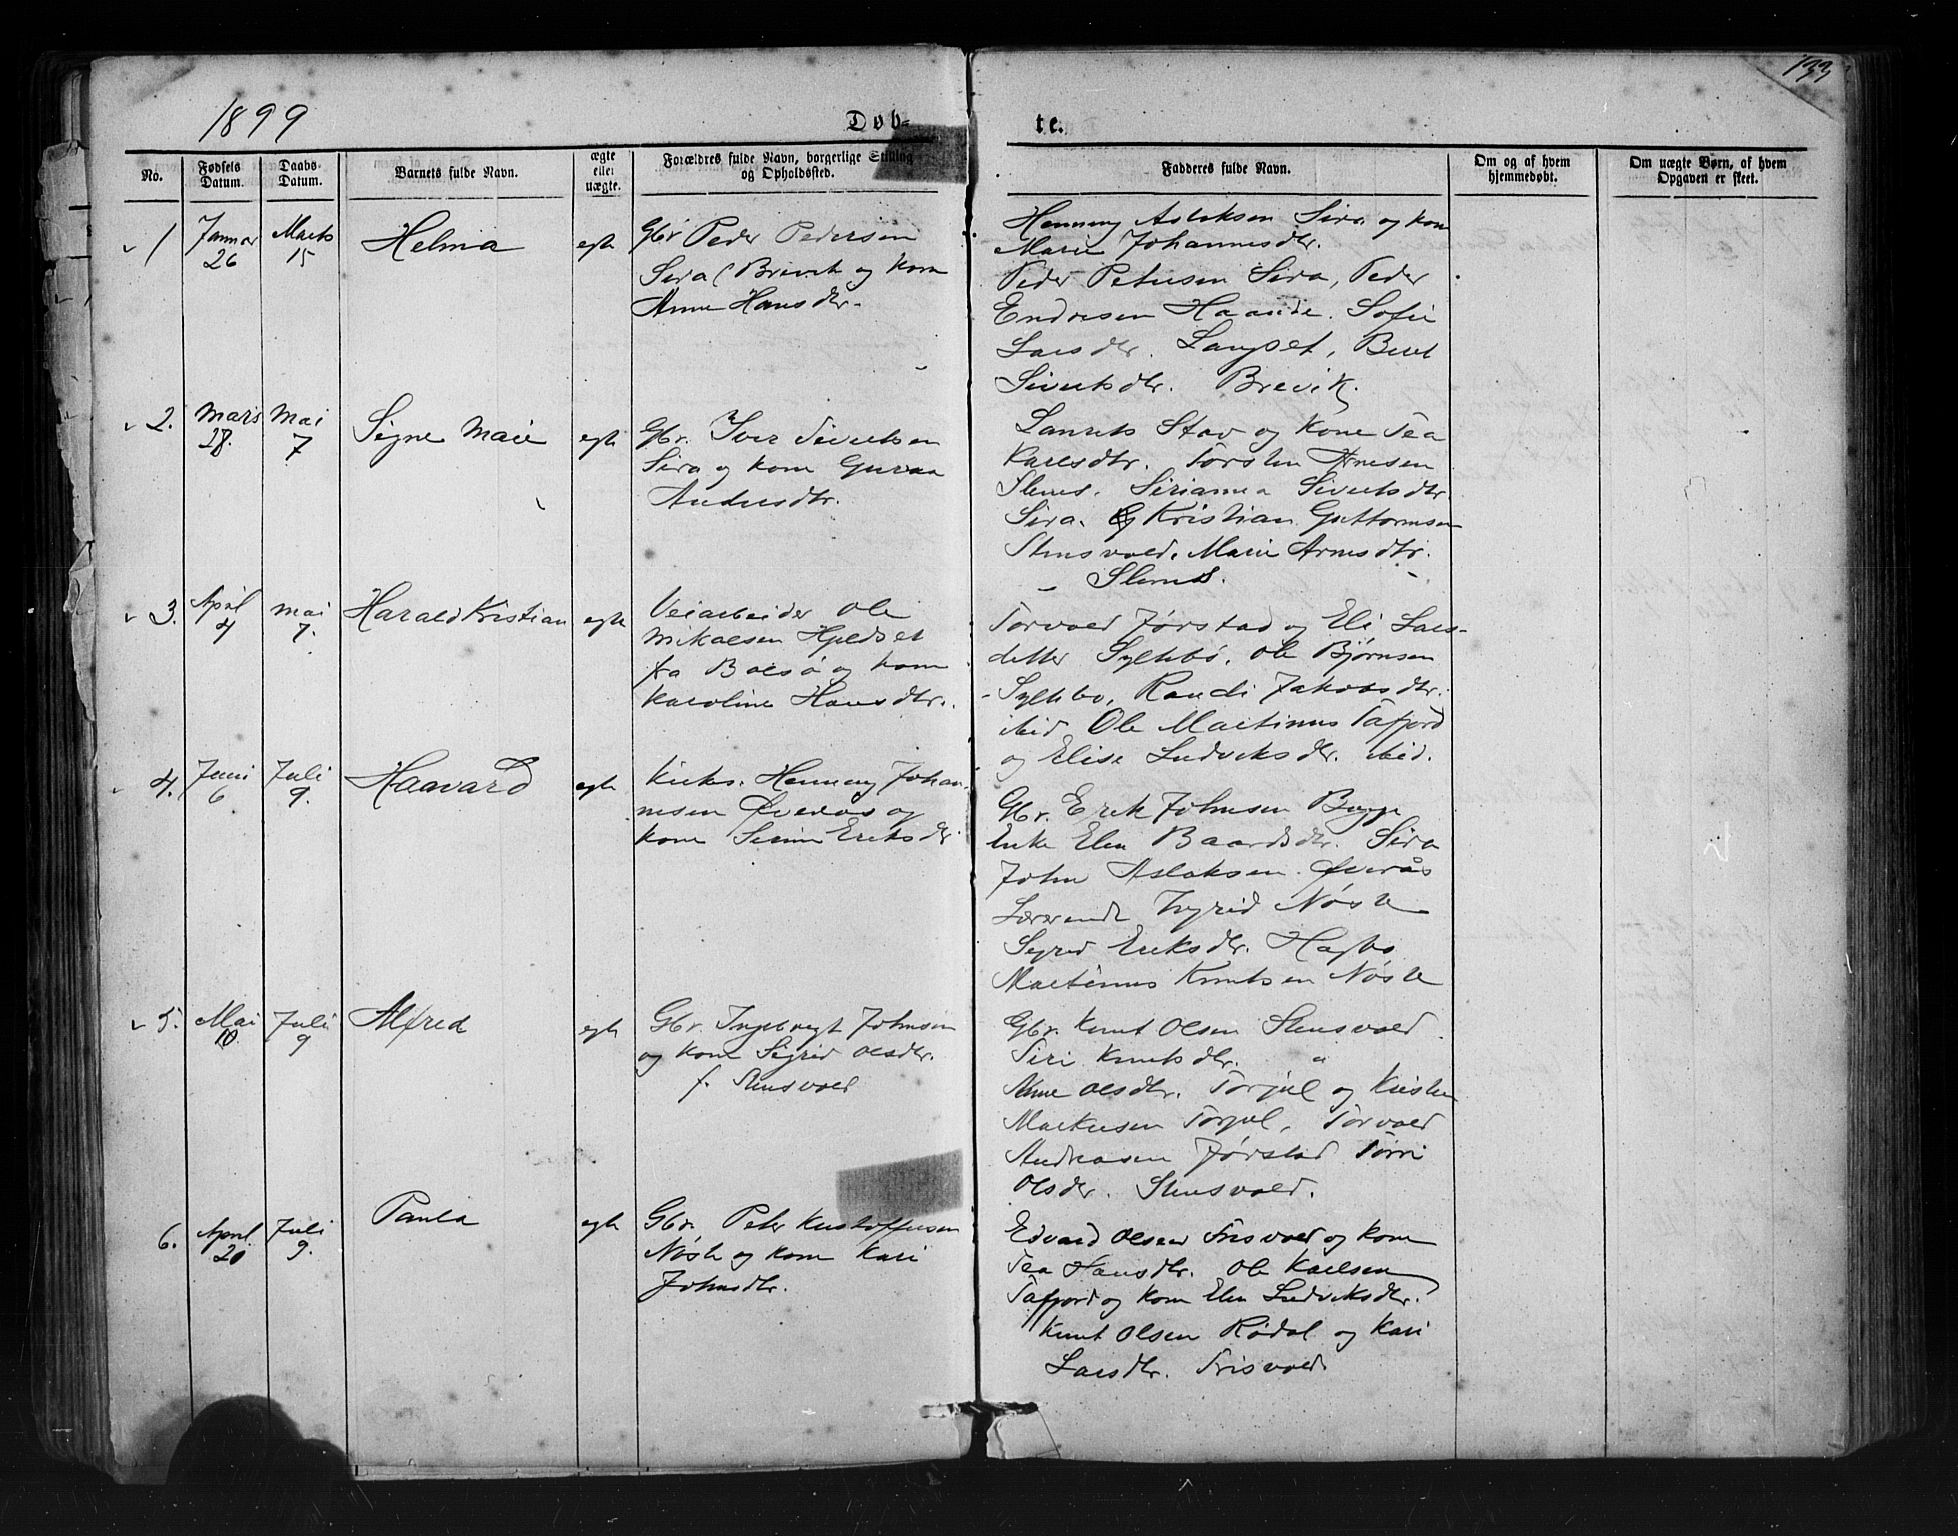 1899
Døb-
te.
133
No.
Fødsels Datum.
Daabs Datum.
Barnets fulde Navn.
ægte eller uægte.
Forældres fulde Navn, borgerlige Stilling og Opholdssted.
Fadderes fulde Navn.
Om og af hvem hjemmedøbt.
Om uægte Børn, af hvem Opgaven er skeet.
1
Januar 26
Marts 15
Helma
egte
Gbr Peder Pedersen
Sira (Brevik og kone
Anne Hansdtr.
Henning Aslaksen Sira og kone
Marie Johannesdtr.
Peder Petersen Sira, Peder
Endresen Haande. Sofie
Larsdtr. Langset, Beret
Sivertsdtr. Brevik.
2.
Mars 28.
Mai 7
Signe Marie
egte
Gbr. Iver Sivertsen
Sira og kone Guraa
Andersdtr.
Laurits Stav og Kone Tea
Karlsdtr. Torsten Arnesen
Slenes. Serianna Sivertsdtr
Sira. Kristian Guttormsen
Stensvold, Marie Arnesdtr.
Slenes.
3.
April 4
Mai 7.
Harald Kristian
egte
Veiarbeider Ole
Mikalsen Hjeldset
fra Bolsø og kone
Karoline Hansdtr.
Torvald Jørstad og Eli Lars-
detter Syltebø. Ole Bjørnsen
Syltebø, Randi Jakobsdtr.
ibid Ole Martinus Tafjord
og Elise Ludviksdtr. ibid.
4.
Juni 6
Juli 9.
Haavard
egte
Kirks. Henning Johan-
nesen Øveraas og
kone Serine Eriksdtr
Gbr. Erik Johnsen Bugge
Enke Elen Baardsdtr. Sira
John Aslaksen Øverås
Lærerinde Ingrid Nøste
Sigrid Eriksdtr. Hagbø
Martinus Knutsen Nøste
5.
Mai 10
Juli 9
Alfred
egte
Gbr. Ingebrigt Johnsen
og kone Sigrid Olsdtr.
f. Stensvold
Gbr. Knut Olsen Stensvold
Siri Knutsdtr. "
Anne Olsdtr. Torjul og Kristen
Markusen Torjul, Torvald
Andreasen Jørstad
Olsdtr. Stensvold.
6.
April 20
Juli 9.
Paula
egte
Gbr. Peter Kristoffersen
Nøste og kone Kari
Johnsdtr.
Edvard Olsen Frisvold og kone
Tea Hansdtr. Ole Karlsen
Tafjord og kone Elen Ludviksdtr.
Knut Olsen Rødal og Kari
Larsdtr. Frisvold